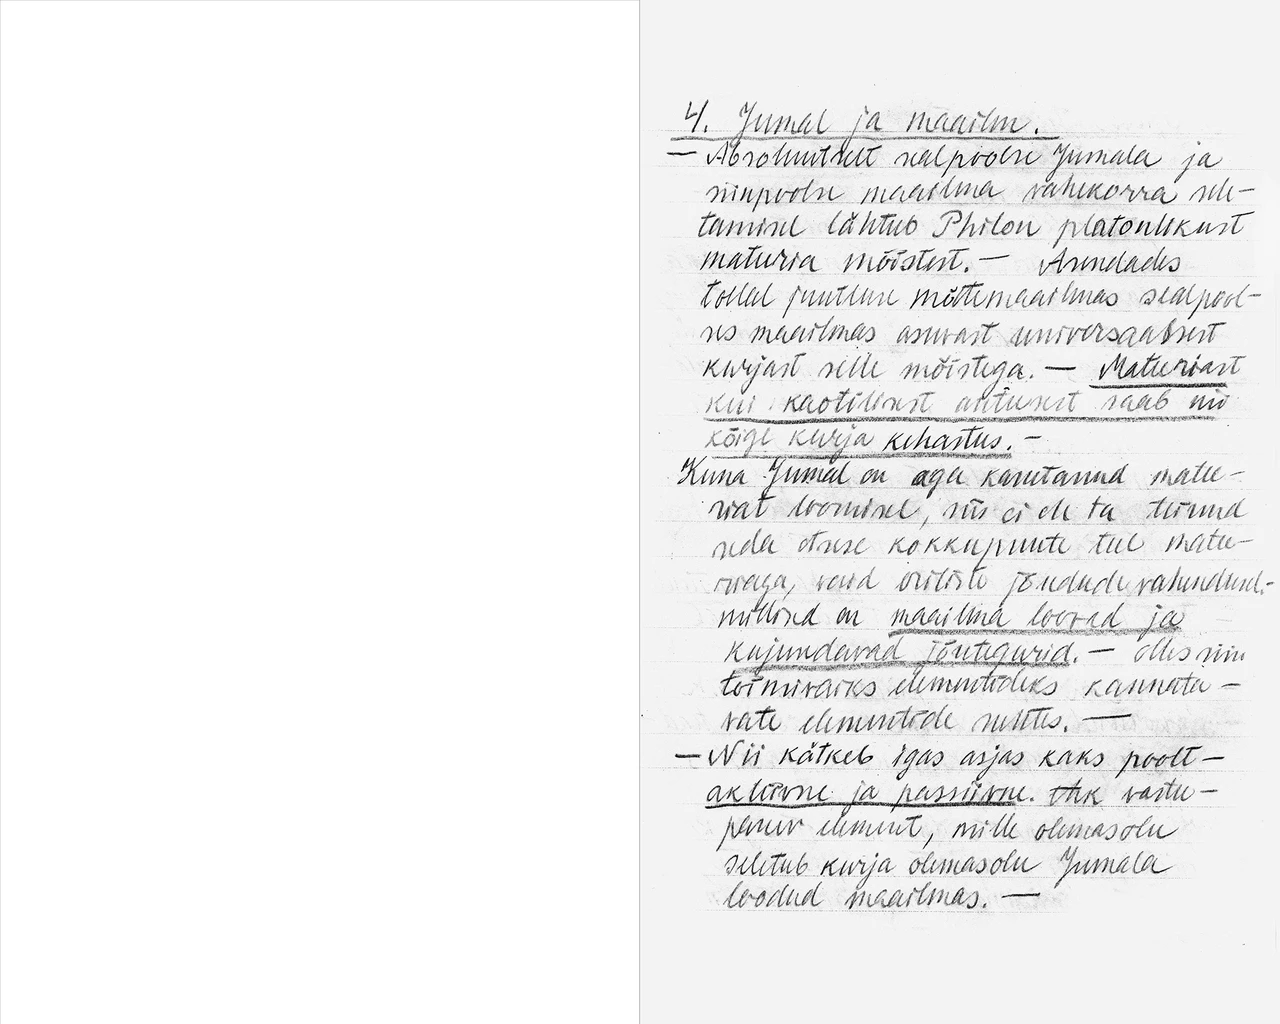 4. Jumal ja maailm.
— Absoluutselt sealpoolse Jumala ja
siinpoolse maailma vahekorra sele-
tamisel lähtub Philon platonlikust
mateeria mõistest. — Arendades
tollal juutluse mõttemaailmas sealpool-
ses maailmas asuvast universaalsest
kurjast selle mõistega. — Mateeriast
kui kaotilisest antusest saab nii
kõige kurja kehastus. —
Kuna Jumal on aga kasutanud matee-
riat loomisel, siis ei ole ta teinud
seda otsese kokkupuute teel matee-
riaga, vaid eriliste jõudude vahendusel.-
millised on maailma loovad ja
kujundavad jõutegurid. — olles niin
toimivaiks elementideks kannata-
vate elementide suhtes. —
— Nii kätkeb igas asjas kaks poolt —
aktiivne ja passiivne. Ehk vastu-
panev element, mille olemasolu
seletub kurja olemasolu Jumala
loodud maailmas. —